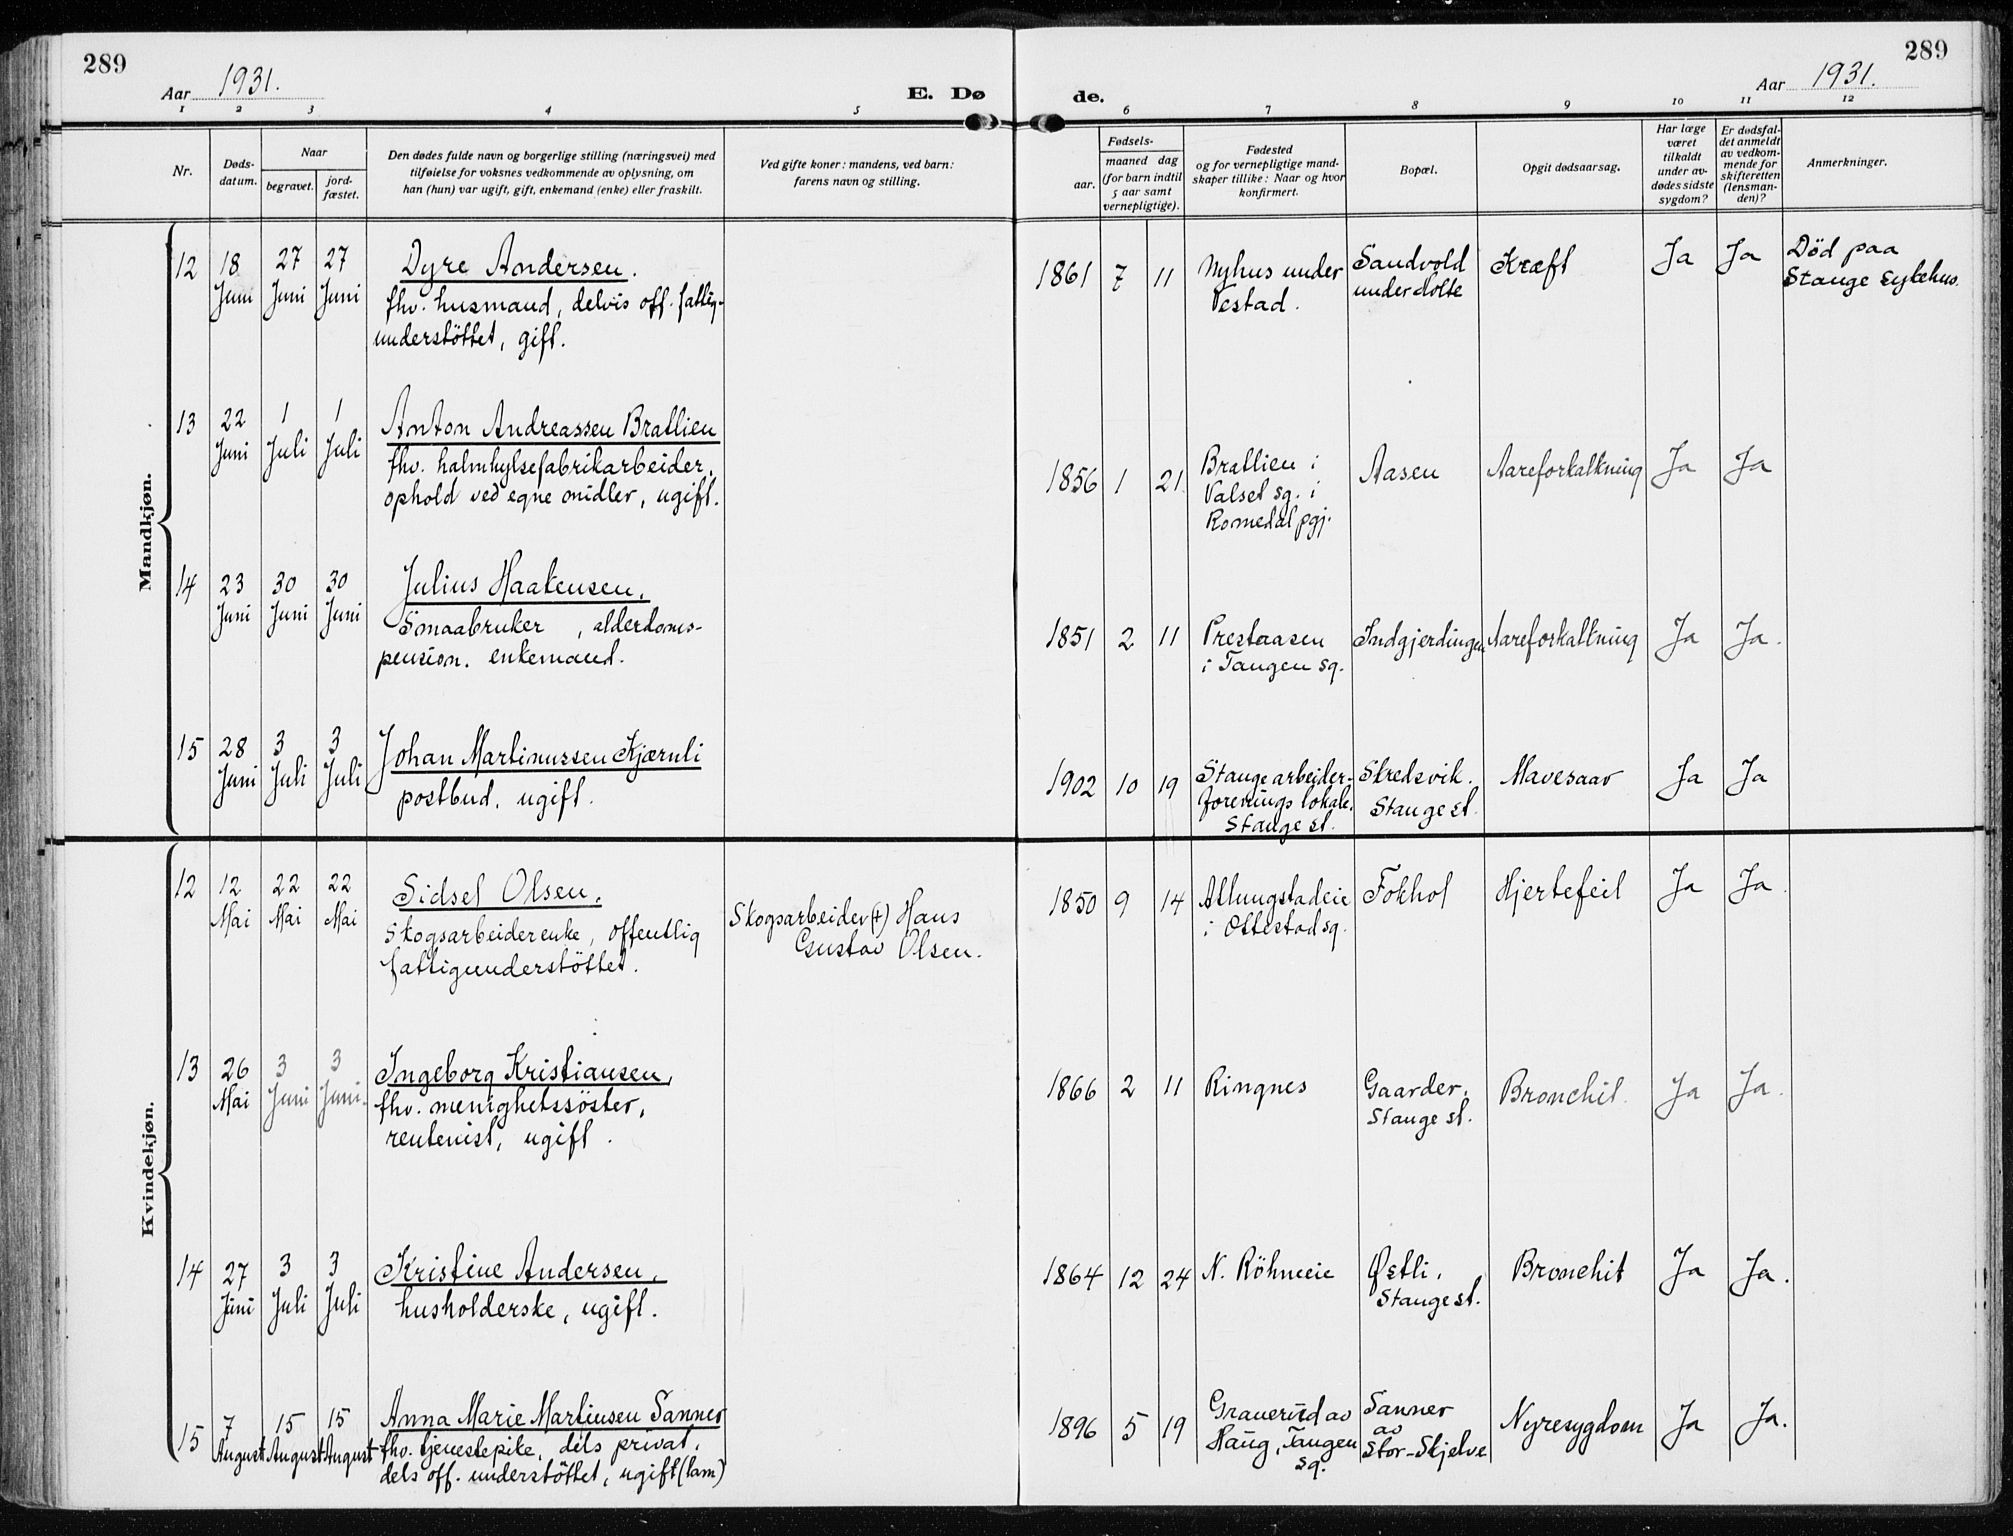 289
289
Aar 1931.
E. Dø
de.
Aar 1931.
1 2 3 4 5 6 7 8 9 10 11 12
Nr.
Døds-
datum.
Naar
begravet.
jord-
fæstet.
Den dødes fulde navn og borgerlige stilling (næringsvei) med
tilføielse for voksnes vedkommende av oplysning, om
han (hun) var ugift, gift, enkemand (enke) eller fraskilt.
Ved gifte koner: mandens, ved barn:
farens navn og stilling.
Fødsels-
aar.
maaned dag
(for barn indtil
5 aar samt
vernepligtige).
Fødested
og for vernepligtige mand-
skaper tillike: Naar og hvor
konfirmert.
Bopæl.
Opgit dødsaarsag.
Har læge
været
tilkaldt
under av-
dødes sidste
sygdom?
Er dødsfal-
det anmeldt
av vedkom-
mende for
skifteretten
(lensman-
den)?
Anmerkninger.
Mandkjøn.
12 18 Juni 27 Juni 27 Juni
Dyre Andersen.
fhv. husmand, delvis off. fattig-
understöttet, gift.
1861 7 11
Nyhus under
Vestad.
Sandvold
under Holte
Kræft
Ja Ja
Död paa
Stange sykehus.
13 22 Juni 1 Juli 1 Juli
Anton Andreassen Bratlien
fhv. halmhylsefabrikarbeider,
ophold ved egne midler, ugift.
1856 1 21
Bratlien i
Valset sg. i
Romedal pgj.
Aasen
Aareforkalkning
Ja Ja
14 23 Juni 30 Juni 30 Juni
Julius Haakensen.
Smaabruker, alderdoms-
pension. enkemand.
1851 2 11
Prestaasen
i Tangen sg.
Indgjerdingen
Aareforkalkning
Ja Ja.
15 28 Juni 3 Juli 3 Juli
Johan Martinussen Kjærnli
postbud, ugift.
1902 10 19
Stange arbeider-
forenings lokale,
Stange st.
Skredsvik.
Stange st.
Mavesaar
Ja Ja
Kvindekjøn.
12 12 Mai 22 Mai 22 Mai
Sidsel Olsen.
Skogsarbeiderenke, offentlig
fattigunderstöttet.
Skogsarbeider (+) Hans
Gustav Olsen.
1850 9 14
Atlungstadeie
i Ottestad sg.
Fokhol
Hjertefeil
Ja Ja.
13 26 Mai 3 Juni 3 Juni.
Ingeborg Kristiansen,
fhv. menighetssöster,
rentenist, ugift.
1866 2 11
Ringnes
Gaarder,
Stange st.
Bronchit.
Ja Ja.
14 27 Juni 3 Juli 3 Juli
Kristine Andersen,
husholderske, ugift.
1864 12 24
N. Röhneeie
Østli,
Stange st.
Bronchit
Ja Ja.
15 7 August 15 August 15 August
Anna Marie Martinsen Sanner
fhv. tjenestepike, dels privat,
dels off. understöttet, ugift (lam)
1896 5 19
Grauerud av
Haug, Tangen
sg.
Sanner
av
Stor-Skjelve
Nyresygdom
Ja Ja.